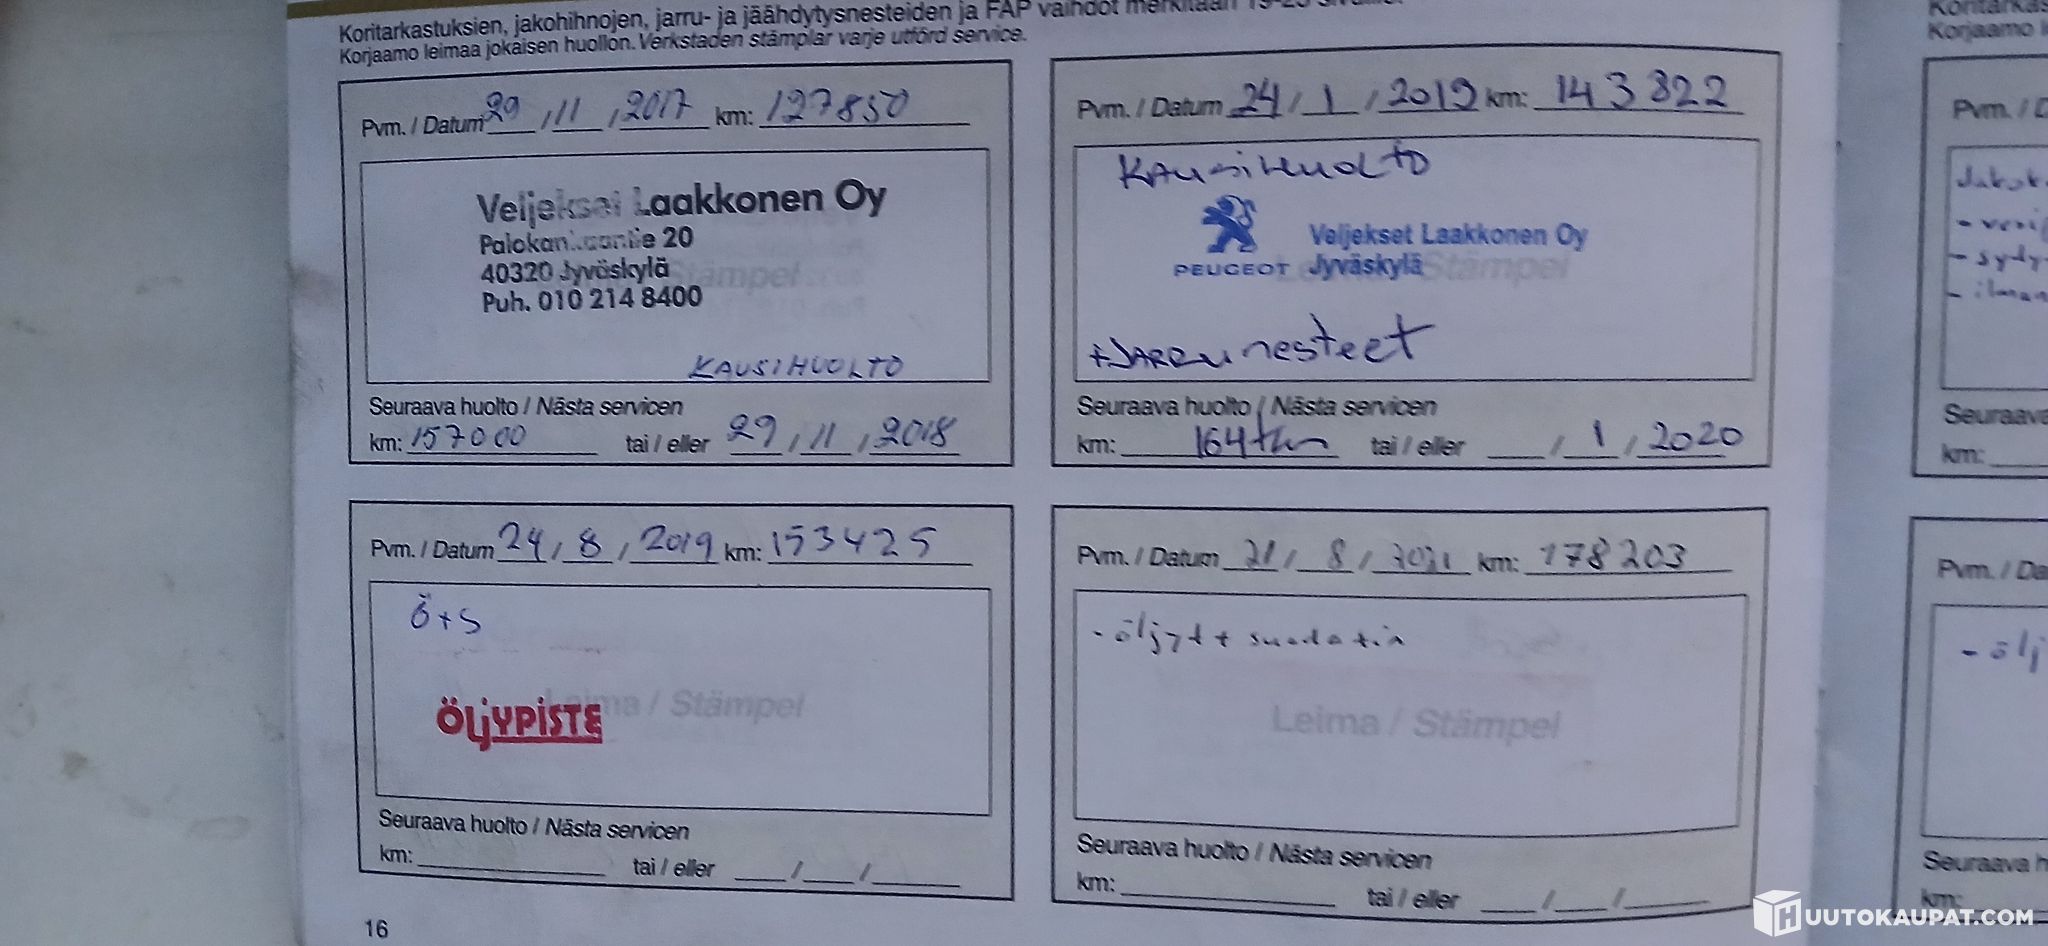 Koritarkastuksien, jakohihnojen, jarru- ja jäähdytysnesteiden ja FAP vaihdot merkitään
Korjaamo leimaa jokaisen huollon. Verkstaden stämplar varje utförd service.
Pvm. / Datum 29 / 11 / 2017 km: 127850
Veljekset Laakkonen Oy
Palokankaantie 20
40320 Jyväskylä
Puh. 010 214 8400
Stämpel
KAUSIHUOLTO
Seuraava huolto / Nästa servicen
km: 157000 tai / eller 29 / 11 / 2018
Pvm. / Datum 24 / 1 / 2019 km: 143 822
Kausihuolto
PEUGEOT
Veljekset Laakkonen Oy
Jyväskylä
Stämpel
+Jarrunesteet
Seuraava huolto / Nästa servicen
km: 164tkm tai / eller / 1 / 2020
Pvm. / Datum 24 / 8 / 2019 km: 153425
Ö+S
Leima / Stämpel
ÖLJYPISTE
Seuraava huolto / Nästa servicen
km: tai / eller / /
Pvm. / Datum 21 / 8 / 2021 km: 178203
- öljyt + suodatin
Leima / Stämpel
Seuraava huolto / Nästa servicen
km: tai / eller / /
16
Korjaamo
Pvm. /
Seuraava
km:
Pvm. / Da
- ölj
Seuraava h
km:
HUUTOKAUPAT.COM